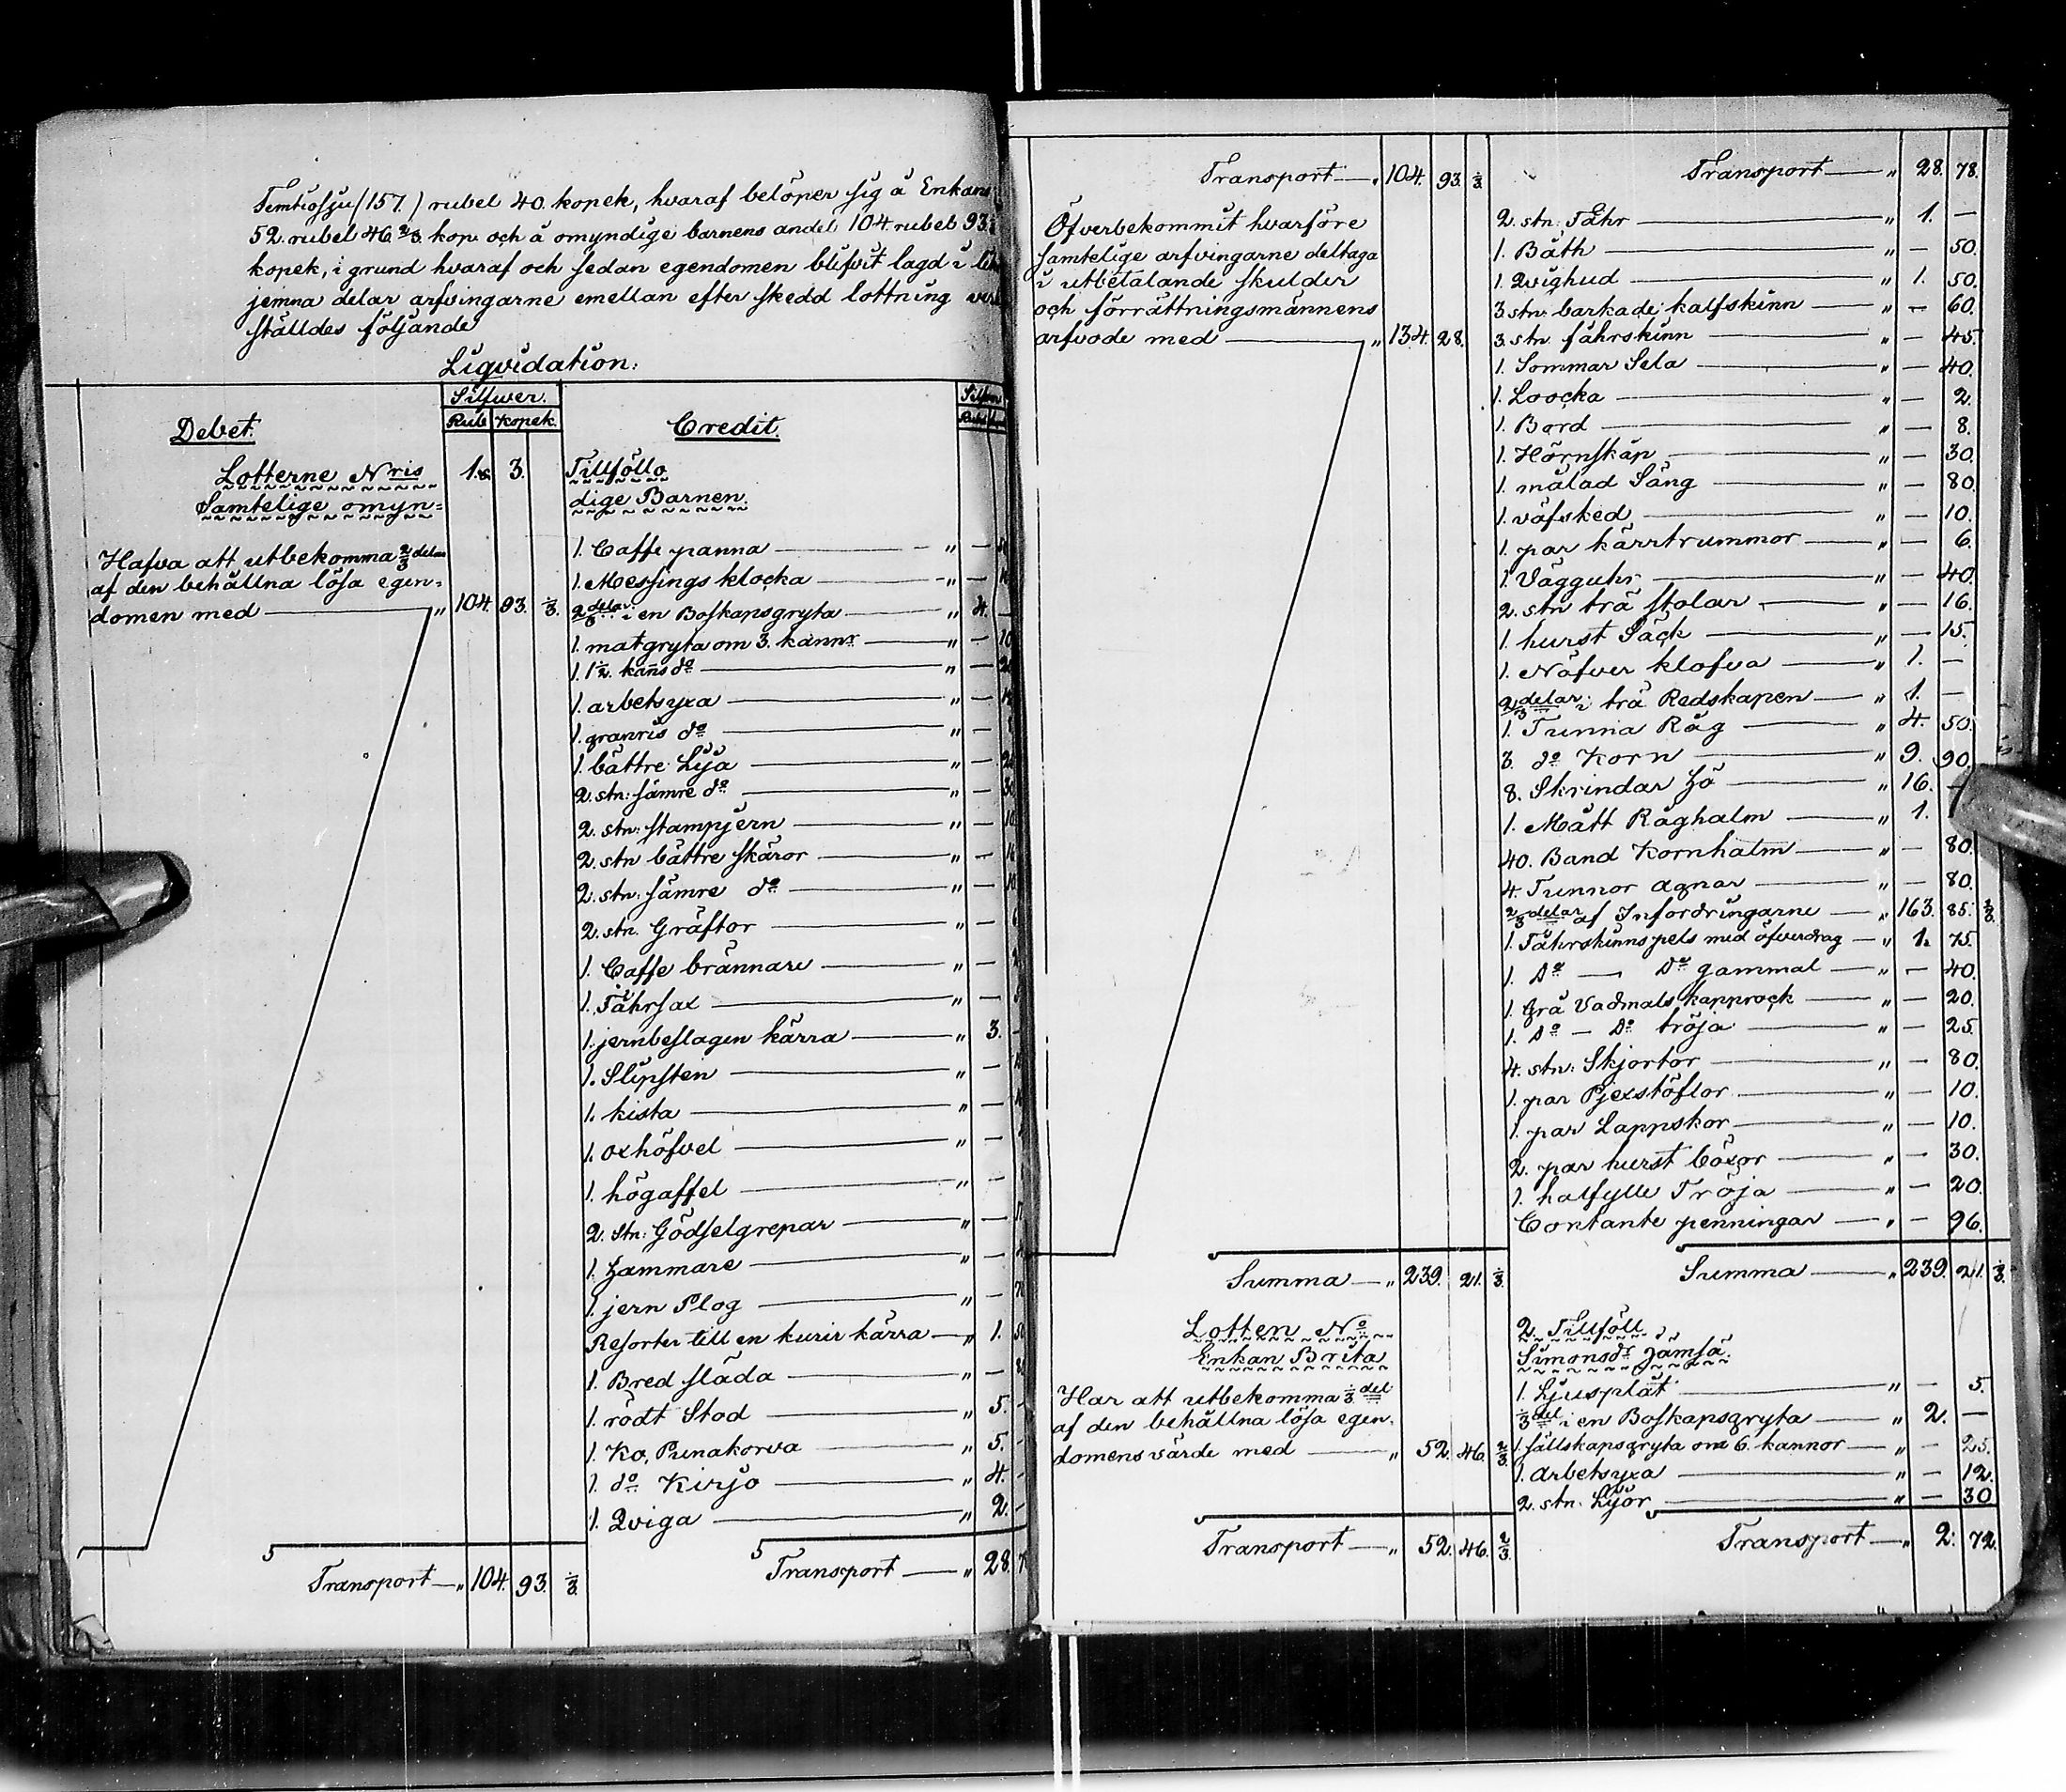 Femtiosju (157.) rubel 40. kopek, hvaraf belöper sig å Enkans
52. rubel 46 2/3 kop. och å omyndige barnens andel 104. rubel 93.
kopek, i grund hvaraf och sedan egendomen blifvit lagd i
jemna delar arfvingarne emellan efter skedd lottning
ställdes följande
Liqvidation:
Debet.
Silfwer.
Rub. kopek.
Credit.
Silfwer
Lotterne Nris 1. & 3. Tillföllo
Samtelige omyn= dige Barnen.
Hafva att utbekomma 2/3 delar
af den behållna lösa egen=
domen med — „ 104. 93. 1/3.
1. Caffe panna — „ —
1. Messings klocka — „ —
2/3 delar i en Boskapsgryta — „ 4. —
1. matgryta om 3. kannr — „ —
1. 1 1/2. kans do — „ —
1. arbetsyxa — „ —
1. granris do — „ —
1. bättre Lija — „ —
2. stn: sämre do — „ —
2. stn: stampjern — „ —
2. stn bättre skäror — „ —
2. stn: sämre do — „ —
2. stn. Gräftor — „ —
1. Caffe brännare — „ —
1. Fåhrsax — „ —
1. jernbeslagen kärra — „ 3.
1. Slipsten — „ —
1. kista — „ —
1. oxhöfvel — „ —
1. högaffel — „ —
2. stn: Gödselgrepar — „ —
1. Hammare — „ —
1. jern Plog — „ —
Resorter till en kurir kärra — „ 1.
1. Bred släda — „ —
1. rödt Stod — „ 5.
1. Ko, Punakorva — „ 5.
1. do Kirjo — „ 4.
1. Qviga — „ 2.
Transport — „ 104. 93. 1/3.
Transport — „ 28.
Transport — „ 104. 93. 1/3.
Öfverbekommit hvarföre
samtelige arfvingarne deltaga
i utbetalande skulder
och förrättningsmännens
arfvode med — „ 134. 28.
Summa — „ 239. 21. 1/3.
Transport — „ 28. 78.
2. stn: Fåhr — „ 1. —
1. Båth — „ — 50.
1. Qvighud — „ 1. 50.
3. stn: barkade kalfskinn — „ — 60.
3. stn. fåhrskinn — „ — 45.
1. Sommar Sela — „ — 40.
1. Loocka — „ — 2.
1. Bord — „ — 8.
1. Hörnskåp — „ — 30.
1. målad Säng — „ — 80.
1. väfsked — „ — 10.
1. par kärrtrummor — „ — 6.
1. Vägguhr — „ — 40.
2. stn trä stolar — „ — 16.
1. hurst Säck — „ — 15.
1. Näfver klofva — „ 1. —
2/3 delar i trä Redskapen — „ 1. —
1. Tunna Råg — „ 4. 50.
3. do Korn — „ 9. 90.
8. Skrindar Hö — „ 16. —
1. Mått Råghalm — „ 1.
40. Band Kornhalm — „ — 80.
4. Tunnor agnar — „ — 80.
2/3 delar af Infordringarne — „ 163. 85. 1/3.
1. Fåhrskinns pels med öfverdrag — „ 1. 75.
1. do — do gammal — „ — 40.
1. grå Vadmals kapprock — „ — 20.
1. do — do tröja — „ — 25.
4. stn: Skjortor — „ — 80.
1. par Pjexstöflor — „ — 10.
1. par Lappskor — „ — 10.
2. par hurst böxor — „ — 30.
1. halfylle Tröja — „ — 20.
Contante penningar — „ — 96.
Summa — „ 239. 21. 1/3.
Lotten No 2. Tillföll
Enkan Brita Simonsdr Jämsä.
Har att utbekomma 1/3 del
af den behållna lösa egen=
domens värde med — „ 52. 46. 2/3.
1. Ljusplåt — „ — 5.
1/3 del i en Boskapsgryta — „ 2. —
1. sällskapsgryta om 6. kannor — „ — 25.
1. arbetsyxa — „ — 12.
2. stn. Lijor — „ — 30
Transport — „ 52. 46. 2/3.
Transport — „ 2. 72.